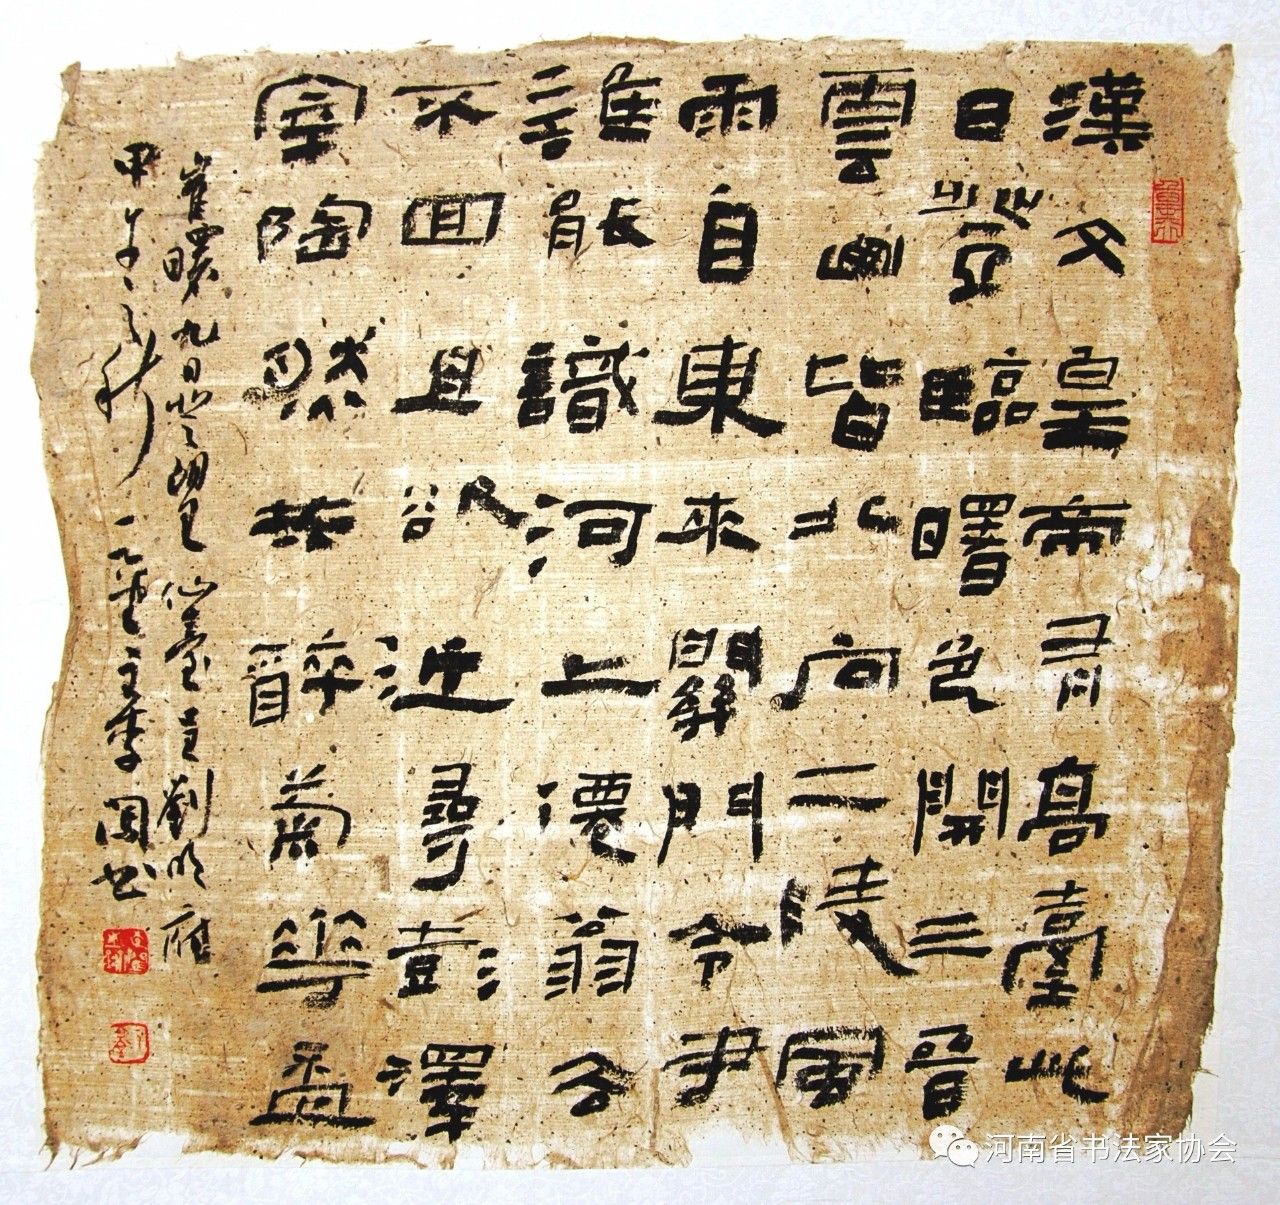 漢文皇帝有高臺此
日登臨曙色開三晉
雲山皆北向二陵風
雨自東來關門令尹
誰能識河上僊翁去
不回且欲近尋彭澤
宰陶然共醉菊花杯
崔曙九日登望仙臺呈劉明府
甲午之秋
河南省书法家协会